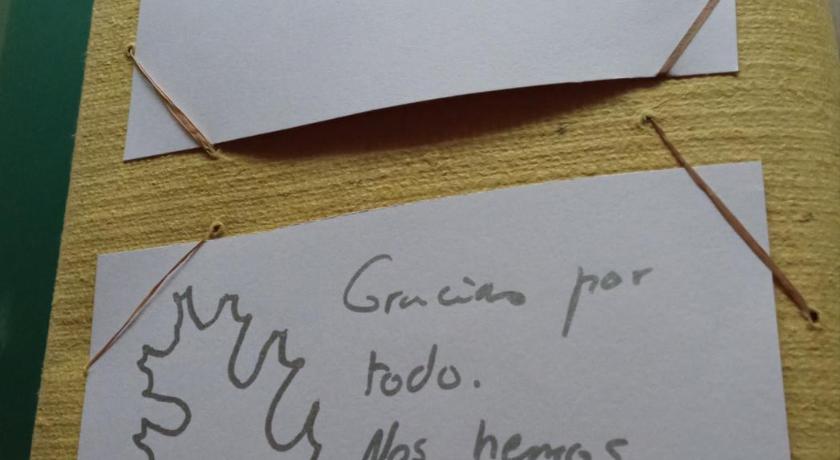 Gracias por
todo.
Nos hemos